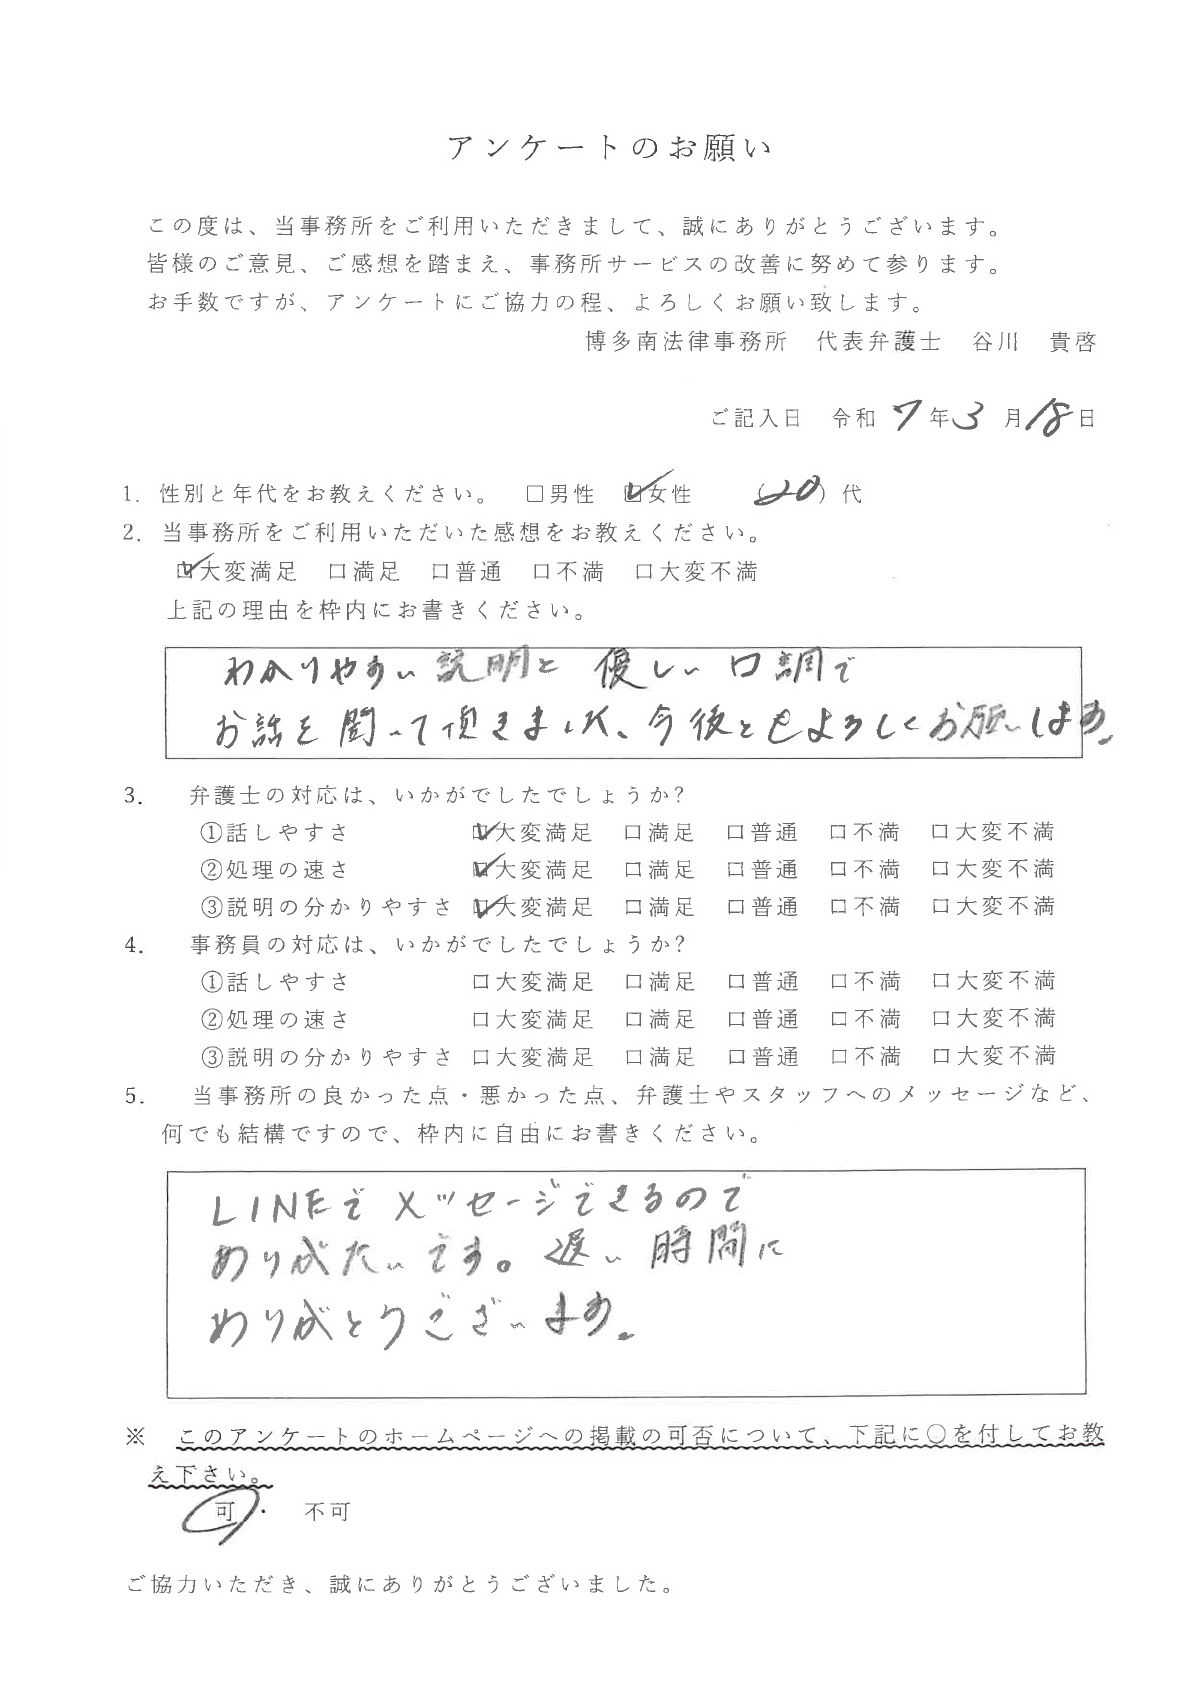 アンケートのお願い
この度は、当事務所をご利用いただきまして、誠にありがとうございます。
皆様のご意見、ご感想を踏まえ、事務所サービスの改善に努めて参ります。
お手数ですが、アンケートにご協力の程、よろしくお願い致します。
博多南法律事務所　代表弁護士　谷川　貴啓
ご記入日　令和 7 年 3 月 18 日
1. 性別と年代をお教えください。　□男性　☑女性　（20）代
2. 当事務所をご利用いただいた感想をお教えください。
☑大変満足　□満足　□普通　□不満　□大変不満
上記の理由を枠内にお書きください。
わかりやすい説明と優しい口調で
お話を聞いて頂きました、今後ともよろしくお願いします。
3.　弁護士の対応は、いかがでしたでしょうか?
①話しやすさ　☑大変満足　□満足　□普通　□不満　□大変不満
②処理の速さ　☑大変満足　□満足　□普通　□不満　□大変不満
③説明の分かりやすさ　☑大変満足　□満足　□普通　□不満　□大変不満
4.　事務員の対応は、いかがでしたでしょうか?
①話しやすさ　□大変満足　□満足　□普通　□不満　□大変不満
②処理の速さ　□大変満足　□満足　□普通　□不満　□大変不満
③説明の分かりやすさ　□大変満足　□満足　□普通　□不満　□大変不満
5.　当事務所の良かった点・悪かった点、弁護士やスタッフへのメッセージなど、
何でも結構ですので、枠内に自由にお書きください。
LINEでメッセージできるので
ありがたいです。遅い時間に
ありがとうございます。
※　このアンケートのホームページへの掲載の可否について、下記に○を付してお教
え下さい。
可・　不可
ご協力いただき、誠にありがとうございました。